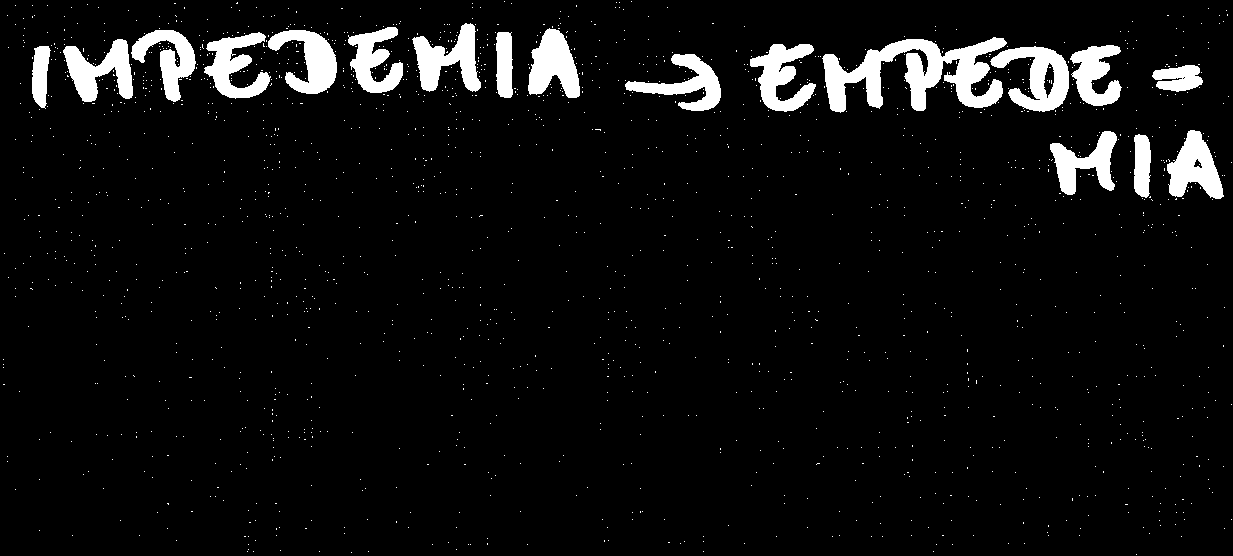 IMPEDEMIA → EMPEDE=
MIA